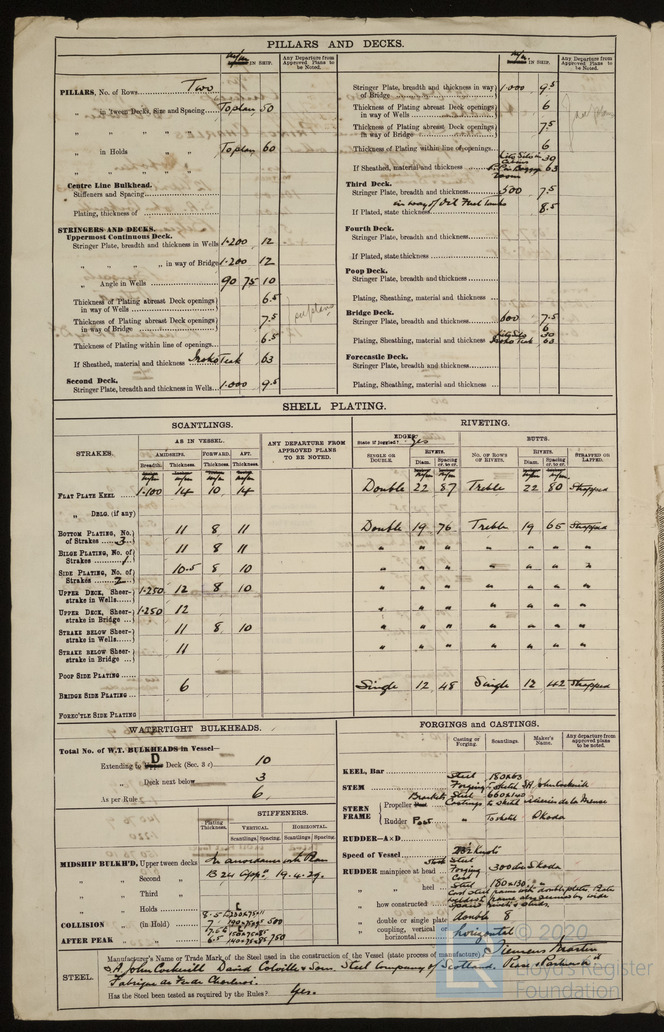 PILLARS AND DECKS.
IN SHIP.
Any Departure from Approved Plans to be Noted.
PILLARS, No. of Rows Two
„ in Tween Decks, Size and Spacing To plan 50
„ in Holds To plan 60
Centre Line Bulkhead.
Stiffeners and Spacing
Plating, thickness of
STRINGERS AND DECKS.
Uppermost Continuous Deck.
Stringer Plate, breadth and thickness in Wells 1·200 12
„ „ „ „ in way of Bridge 1·200 12
„ Angle in Wells 90 75 10
Thickness of Plating abreast Deck openings in way of Wells 6.5
Thickness of Plating abreast Deck openings in way of Bridge 7.5
Thickness of Plating within line of openings 6.5
If Sheathed, material and thickness Iroko Teak 63
Second Deck.
Stringer Plate, breadth and thickness in Wells 1·000 9.5
IN SHIP.
Any Departure from Approved Plans to be Noted.
Stringer Plate, breadth and thickness in way of Bridge 1·000 9.5
Thickness of Plating abreast Deck openings in way of Wells 6
Thickness of Plating abreast Deck openings in way of Bridge 7.5
Thickness of Plating within line of openings 6
If Sheathed, material and thickness 63
Third Deck.
Stringer Plate, breadth and thickness 500 7.5
in way of Oil Fuel tanks
If Plated, state thickness 8.5
Fourth Deck.
Stringer Plate, breadth and thickness
If Plated, state thickness
Poop Deck.
Stringer Plate, breadth and thickness
Plating, Sheathing, material and thickness
Bridge Deck.
Stringer Plate, breadth and thickness 600 7.5
6
Plating, Sheathing, material and thickness Iroko Teak 63
Forecastle Deck.
Stringer Plate, breadth and thickness
Plating, Sheathing, material and thickness
SHELL PLATING.
SCANTLINGS.
RIVETING.
STRAKES.
AS IN VESSEL.
ANY DEPARTURE FROM APPROVED PLANS TO BE NOTED.
EDGES.
State if joggled? Yes
BUTTS.
AMIDSHIPS. FORWARD. AFT.
Breadth. Thickness. Thickness. Thickness.
SINGLE OR DOUBLE.
RIVETS.
Diam. Spacing cr. to cr.
NO. OF ROWS OF RIVETS.
RIVETS.
Diam. Spacing cr. to cr.
STRAPPED OR LAPPED.
FLAT PLATE KEEL 1·100 14 10 14 Double 22 87 Treble 22 80 Strapped
„ DBLG. (if any)
BOTTOM PLATING, No. of Strakes 3 11 8 11 Double 19 76 Treble 19 65 Strapped
BILGE PLATING, No. of Strakes 1 11 8 11 " " " " " " "
SIDE PLATING, No. of Strakes 2 10.5 8 10 " " " " " " "
UPPER DECK, Sheerstrake in Wells 1·250 12 8 10 " " " " " " "
UPPER DECK, Sheerstrake in Bridge 1·250 12 " " " " " " "
STRAKE BELOW Sheerstrake in Wells 11 8 10 " " " " " " "
STRAKE BELOW Sheerstrake in Bridge 11 " " " " " " "
POOP SIDE PLATING
BRIDGE SIDE PLATING 6 Single 12 48 Single 12 42 Strapped
FOREC'TLE SIDE PLATING
WATERTIGHT BULKHEADS.
Total No. of W.T. BULKHEADS in Vessel—
Extending to D Deck (Sec. 3 c) 10
„ Deck next below 3
As per Rule 6
Plating Thickness.
STIFFENERS.
VERTICAL. HORIZONTAL.
Scantlings. Spacing. Scantlings. Spacing.
MIDSHIP BULKH'D, Upper tween decks In accordance with Plan
„ „ Second „ B 24 App. 19.4.29.
„ „ Third „
„ „ Holds
COLLISION „ (in Hold)
AFTER PEAK „ „
FORGINGS and CASTINGS.
Casting or Forging.
Scantlings.
Maker's Name.
Any departure from approved plans to be noted.
KEEL, Bar
STEM Steel Forging 180x63 SA John Cockerill
STERN FRAME Propeller Brackets Steel Castings to sketch
Rudder Post „ To sketch Skoda
RUDDER—A×D
Speed of Vessel
RUDDER mainpiece at head Steel Forging 300 dia Skoda
„ heel Cast Steel
„ how constructed
„ double or single plate double 8
„ coupling, vertical or horizontal horizontal
STEEL.
Manufacturer's Name or Trade Mark of the Steel used in the construction of the Vessel (state process of manufacture) Siemens Martin
SA John Cockerill David Colville & Sons. Steel Company of Scotland.
Fabrique de Fer de Charleroi.
Has the Steel been tested as required by the Rules? Yes.
© 2020
Lloyd's Register
Foundation